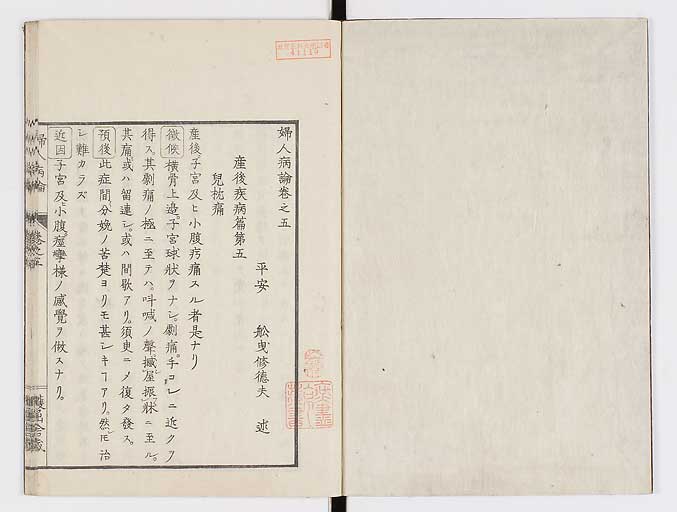 婦人病論卷之五
平安 舩曳修德夫 述
産後疾病篇第五
兒枕痛
産後子宮及ヒ小腹疞痛スル者是ナリ
徵候 橫骨上邉。子宮球狀ヲナシ。劇痛。手コレニ近クヲ
得ス。其劇痛ノ極ニ至テハ。叫喊ノ聲撼屋振牀ニ至ル。
其痛或ハ留連シ。或ハ間歇アリ。須臾ニメ復タ發ス。
預後 此症間分娩ノ苦楚ヨリモ甚シキヿアリ。然𪜈治
シ難カラズ
近因 子宮及ヒ小腹。痙攣樣ノ感覺ヲ做スナリ。
婦人病論
卷之五